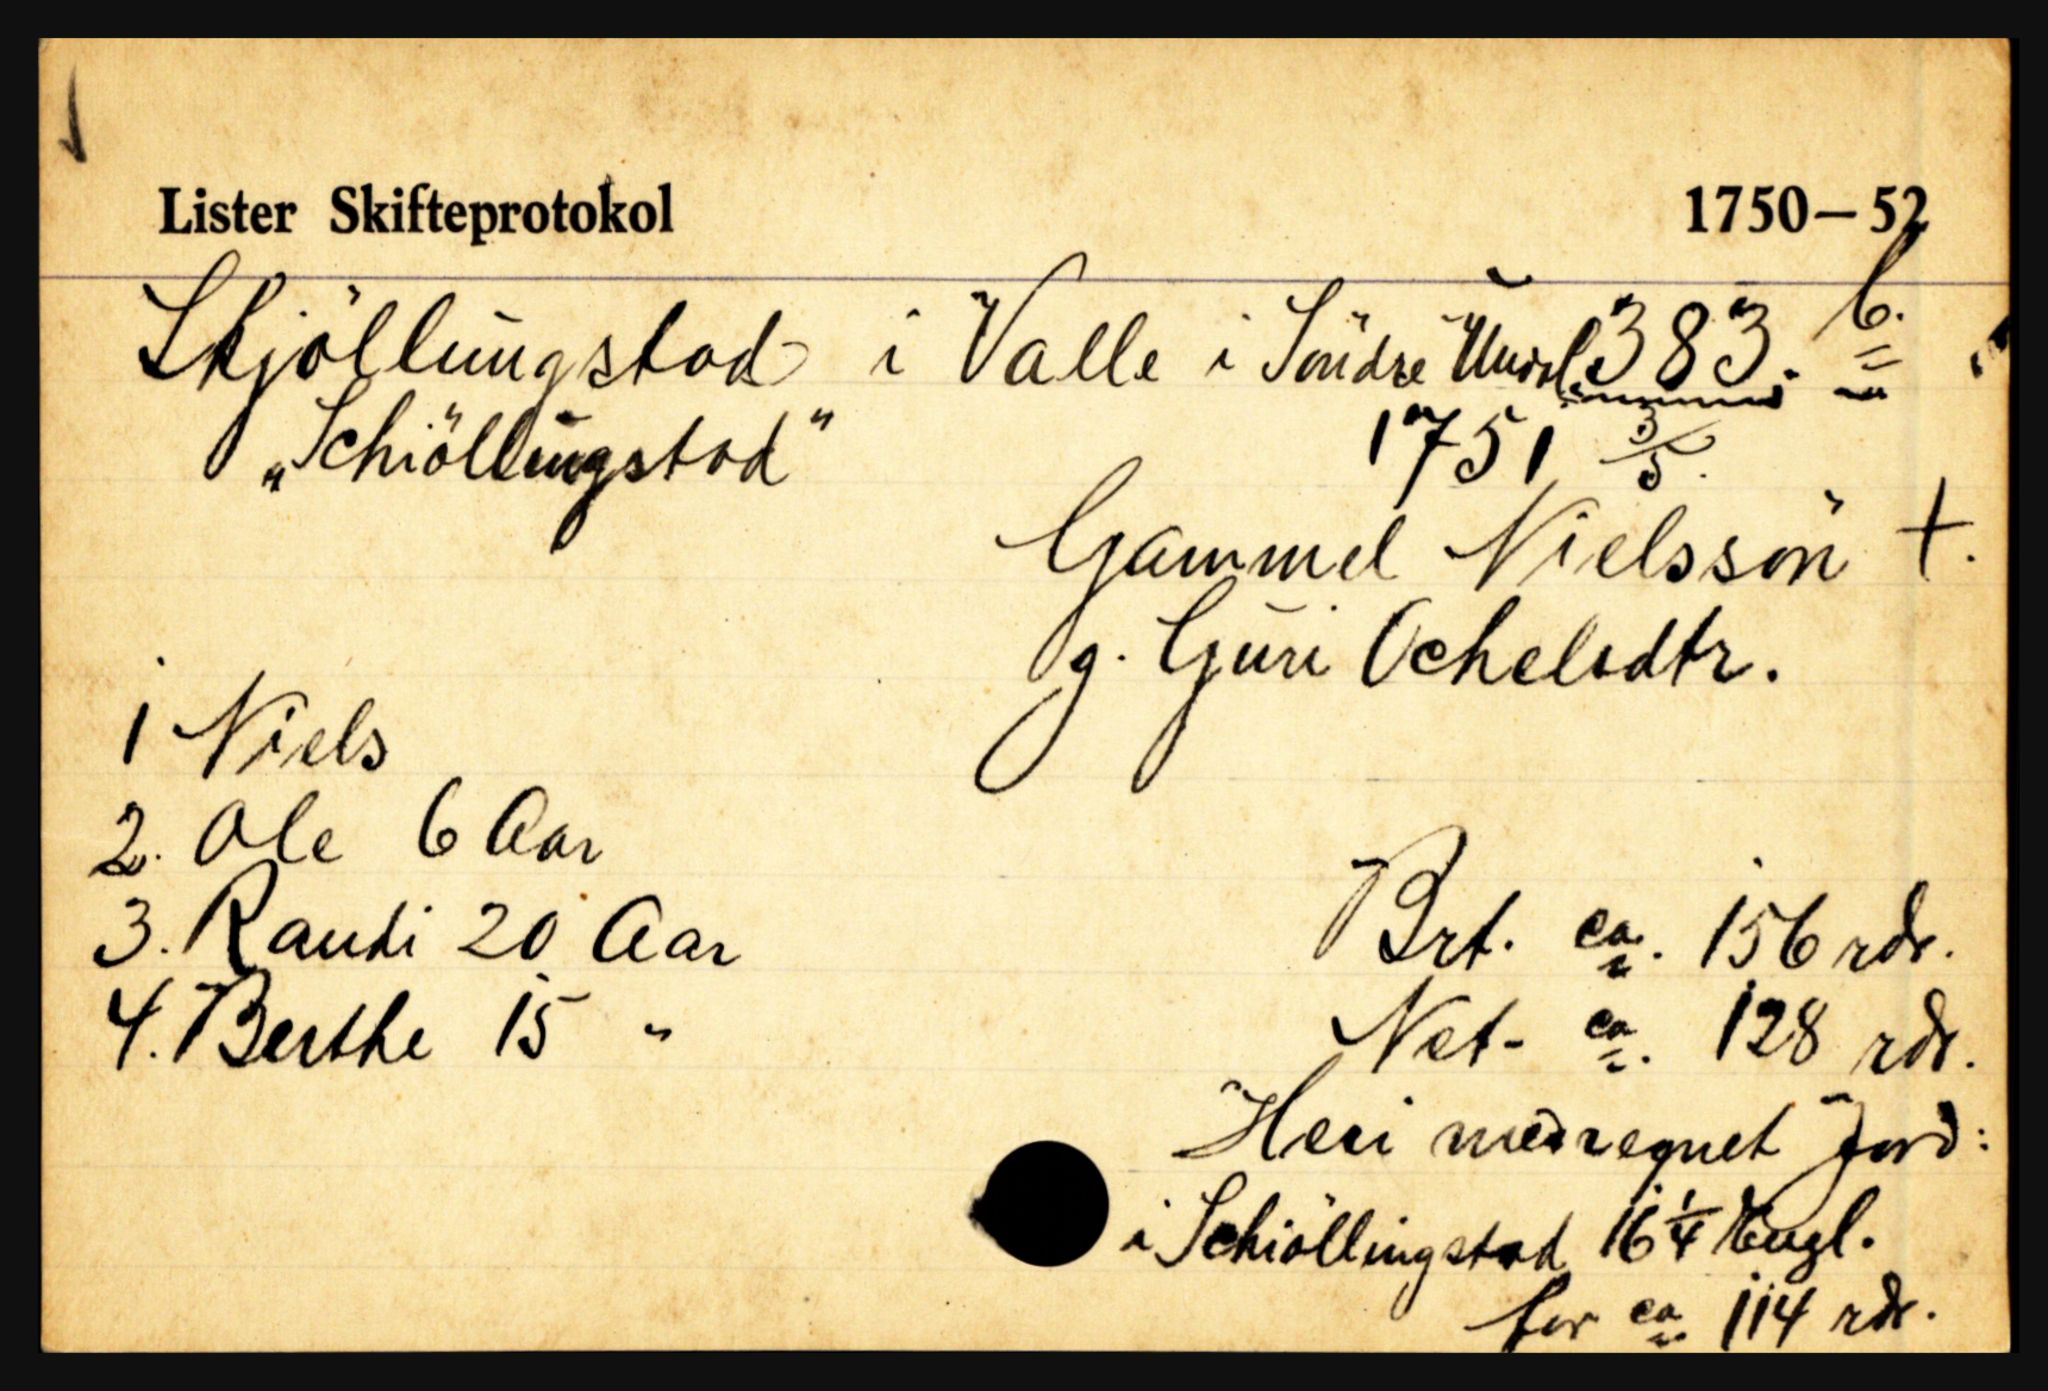 Lister Skifteprotokol 1750—52
Skjöllingstad i Valle i Söndre Undl. 383. b.
"Schiöllingstad" 1751 3/5.
Gammel Nielssön +.
g. Guri Ochelsdtr.
1 Niels
2. Ole 6 Aar
3. Randi 20 Aar Brt. ca. 156 rdr.
4. Berthe 15 " Net- ca. 128 rdr.
Heri medregnet Jord:
i Schiöllingstad 16 1/4 Engl.
for ca. 114 rdr.